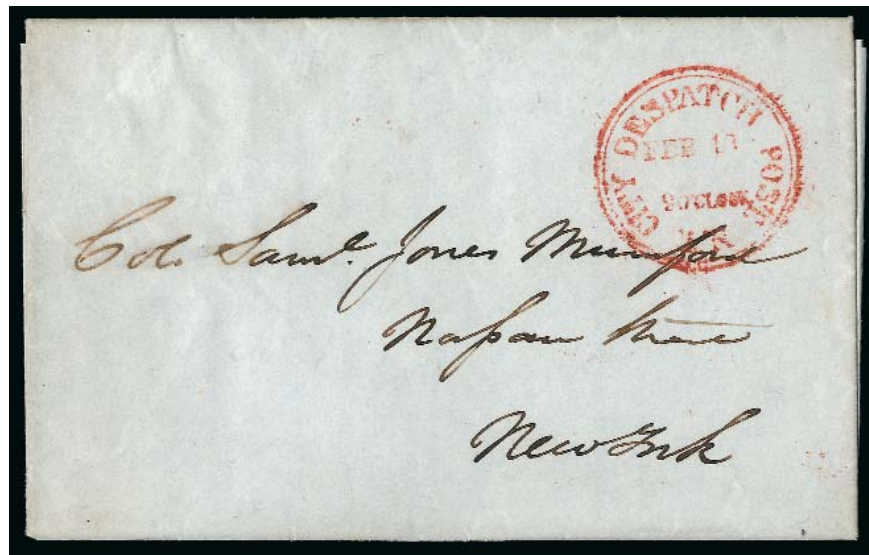 CITY DESPATCH POST
FEB 13
9 O'CLOCK
Col. Saml. Jones Mumford
Nassau Street
New York